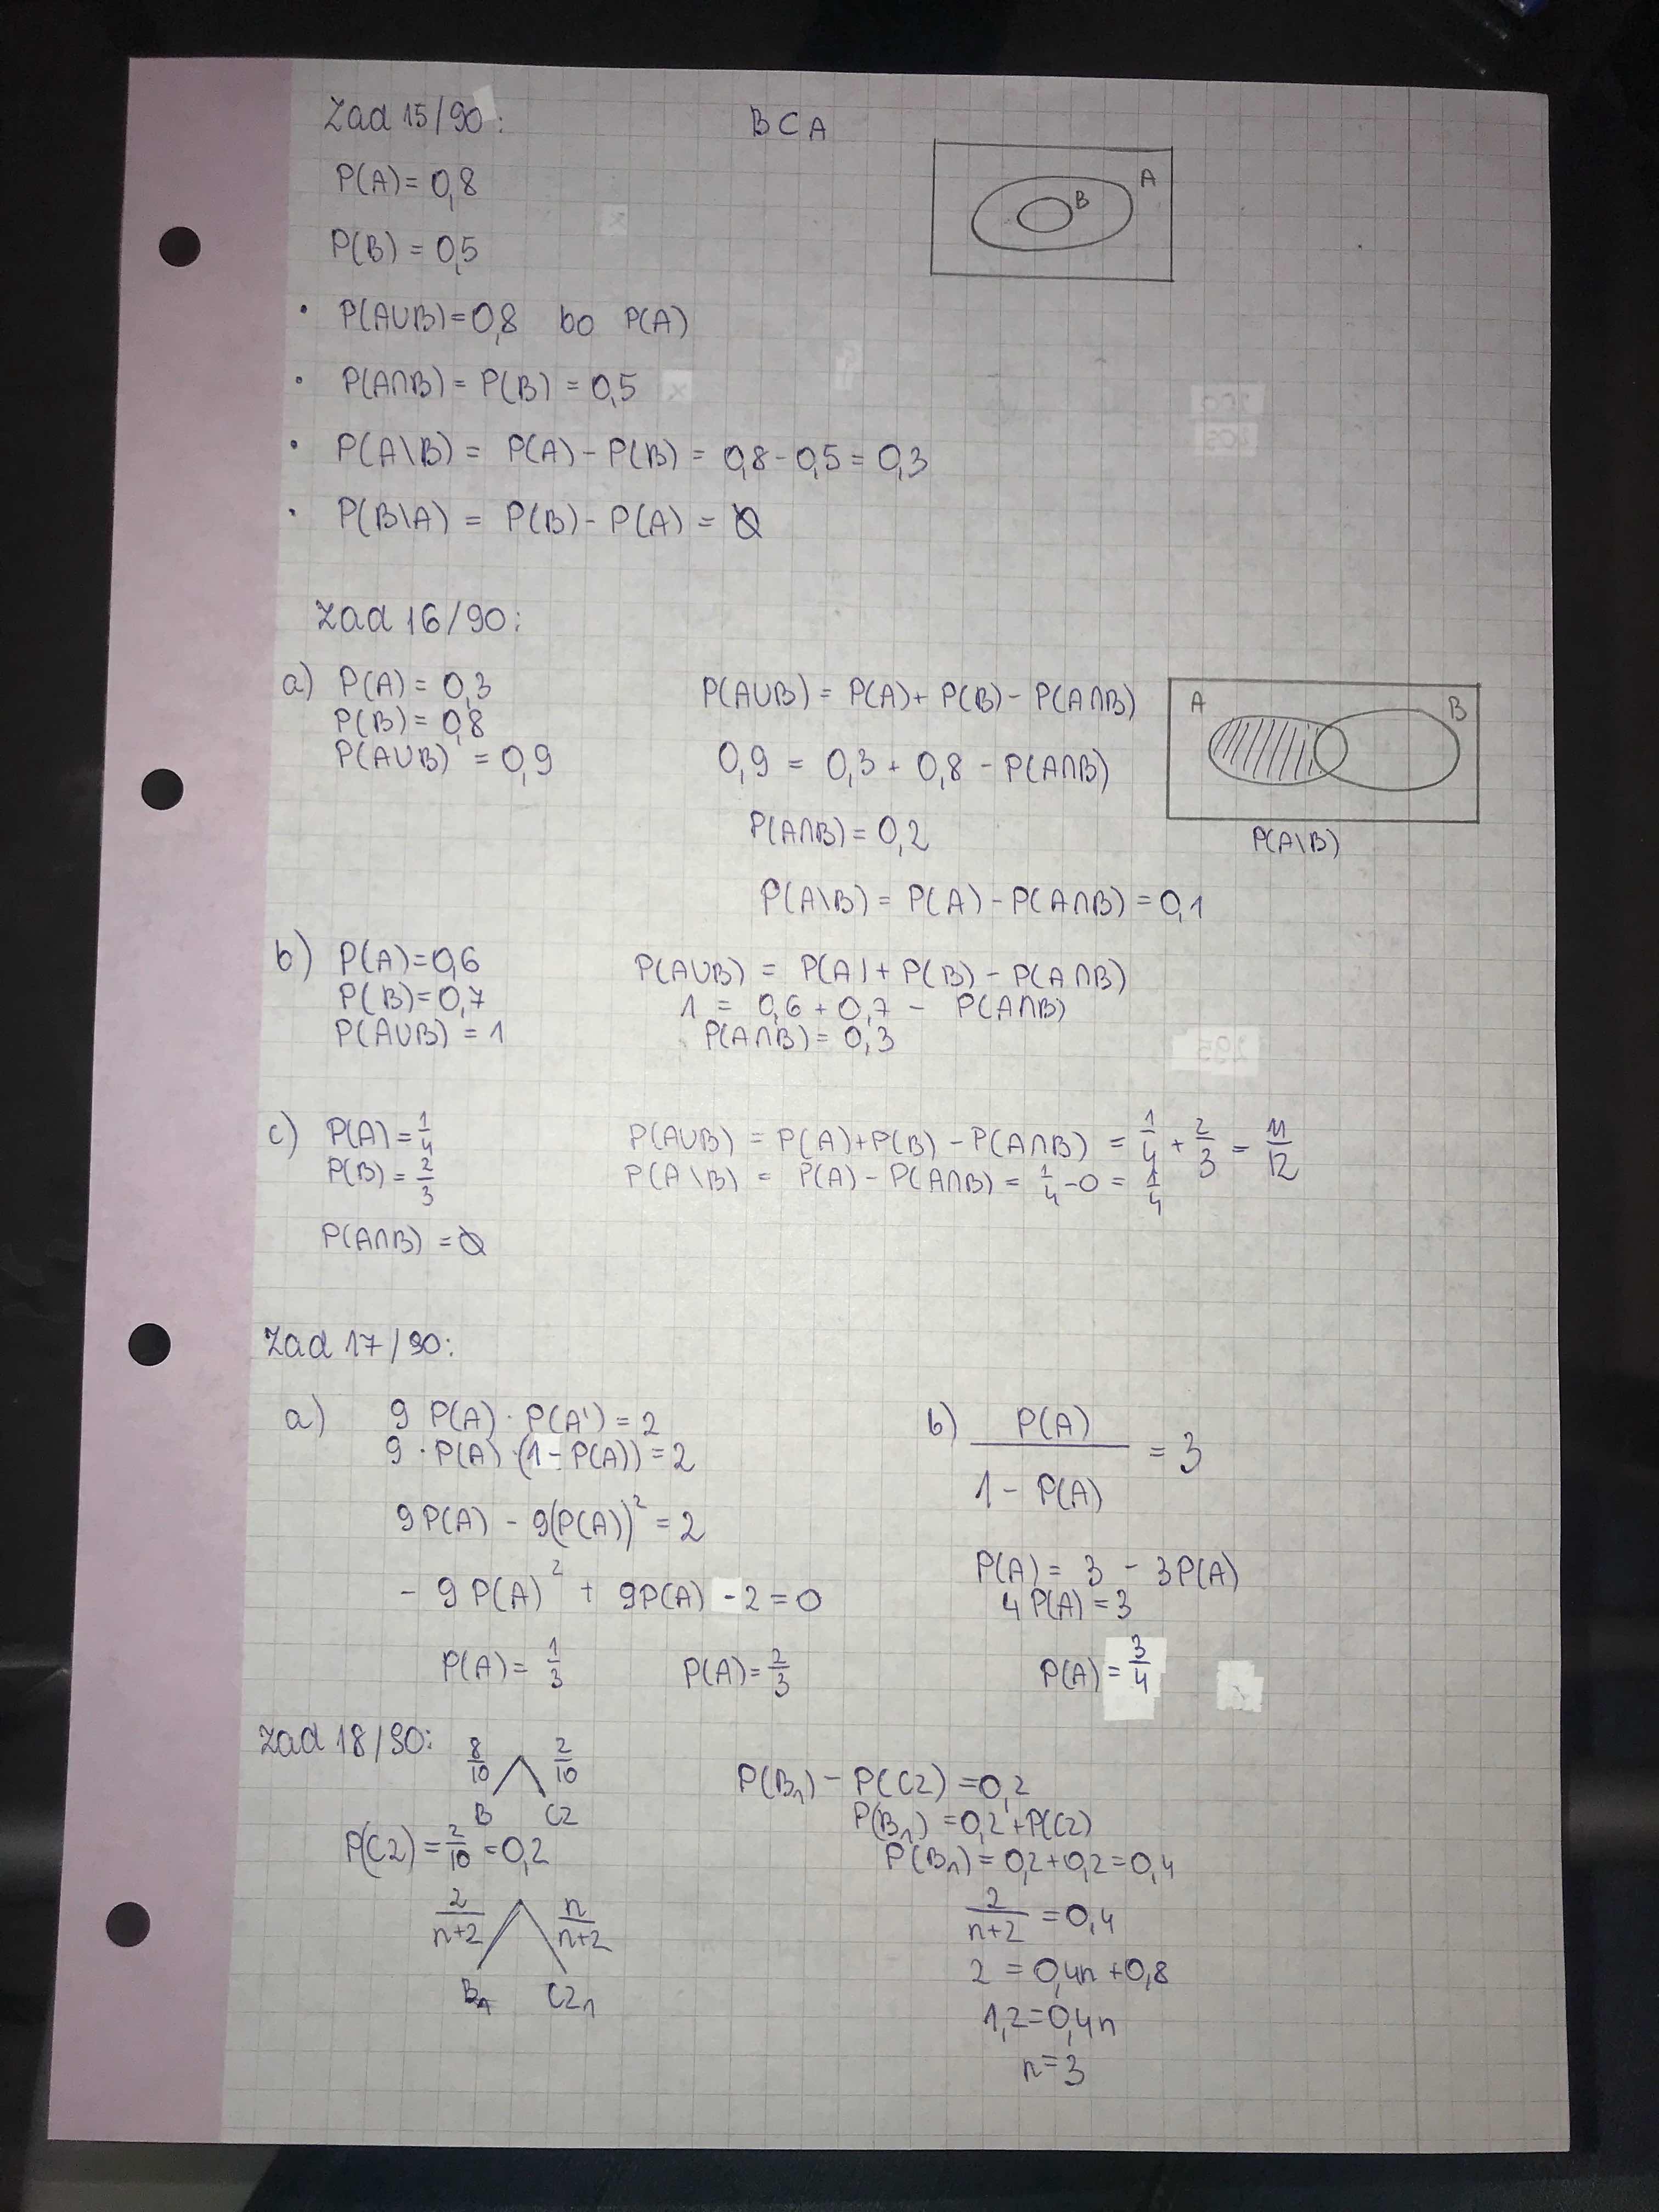 Zad 15/90:
B ⊂ A
P(A) = 0,8
A
B
P(B) = 0,5
• P(A∪B) = 0,8 bo P(A)
• P(A∩B) = P(B) = 0,5
• P(A\B) = P(A) - P(B) = 0,8 - 0,5 = 0,3
• P(B\A) = P(B) - P(A) = ∅
Zad 16/90:
a) P(A) = 0,3
P(B) = 0,8
P(A∪B) = 0,9
P(A∪B) = P(A) + P(B) - P(A∩B)
0,9 = 0,3 + 0,8 - P(A∩B)
P(A∩B) = 0,2
P(A\B) = P(A) - P(A∩B) = 0,1
A
B
P(A\B)
b) P(A) = 0,6
P(B) = 0,7
P(A∪B) = 1
P(A∪B) = P(A) + P(B) - P(A∩B)
1 = 0,6 + 0,7 - P(A∩B)
P(A∩B) = 0,3
c) P(A) = 1/4
P(B) = 2/3
P(A∩B) = ∅
P(A∪B) = P(A) + P(B) - P(A∩B) = 1/4 + 2/3 = 11/12
P(A\B) = P(A) - P(A∩B) = 1/4 - 0 = 1/4
Zad 17/90:
a) 9 P(A) · P(A') = 2
9 · P(A) · (1 - P(A)) = 2
9P(A) - 9(P(A))² = 2
- 9P(A)² + 9P(A) - 2 = 0
P(A) = 1/3
P(A) = 2/3
b) P(A) / 1 - P(A) = 3
P(A) = 3 - 3P(A)
4P(A) = 3
P(A) = 3/4
Zad 18/90:
8/10 2/10
B CZ
P(CZ) = 2/10 = 0,2
2/n+2 n/n+2
B₁ CZ₁
P(B₁) - P(CZ) = 0,2
P(B₁) = 0,2 + P(CZ)
P(B₁) = 0,2 + 0,2 = 0,4
2/n+2 = 0,4
2 = 0,4n + 0,8
1,2 = 0,4n
n = 3